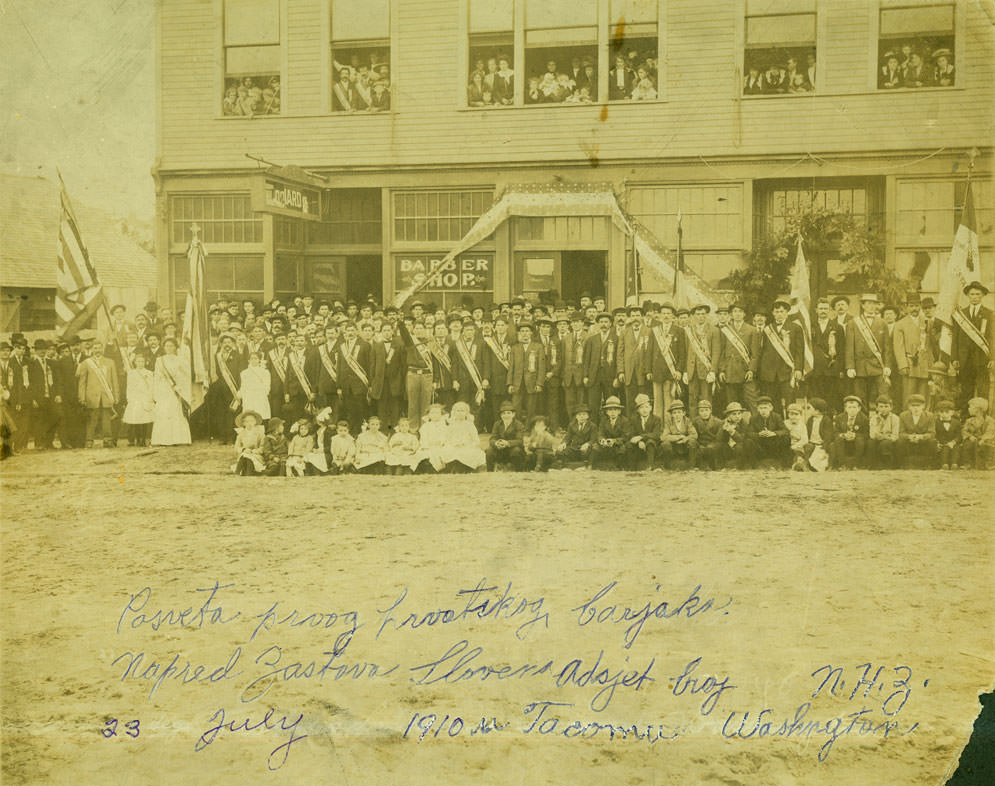 BARBER
SHOP
Posveta prvog hrvatskog barjaka.
Napred Zastava Slovena Odsjet broj N.H.Z.
23 July 1910 u Tacoma Washngton